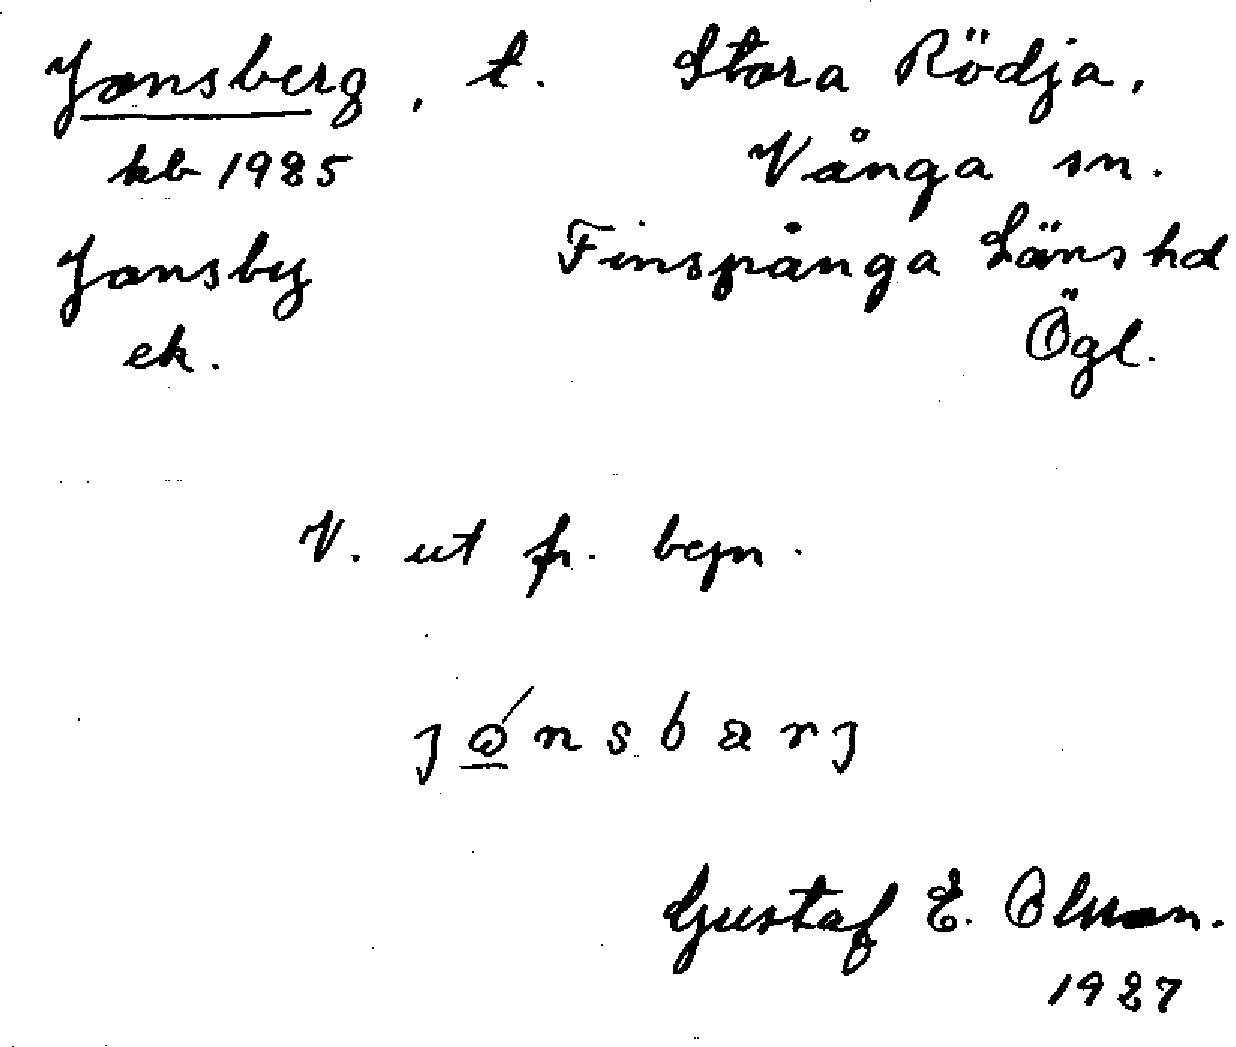 Jonsberg, t. Stora Rödja,
kb 1925 Vånga sn.
Jonsby Finspånga Länshd
ek. Ögl.
V. ut fr. bejn.
Gustaf E. Olsson.
1927